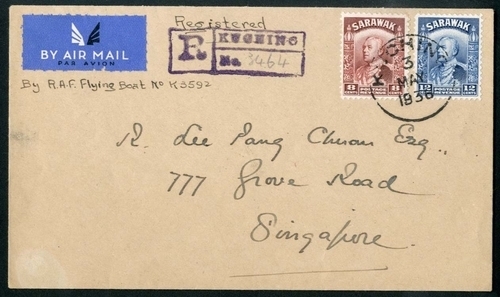 Registered
BY AIR MAIL
PAR AVION
R KUCHING
No. 3464
By R.A.F. Flying Boat No K3592
SARAWAK
8 CENTS POSTAGE REVENUE 8 CENTS
SARAWAK
12 CENTS POSTAGE REVENUE 12 CENTS
KUCHING
3
MAY
1936
R. Lee Pang Chuan Esq.,
777 Grove Road
Singapore.